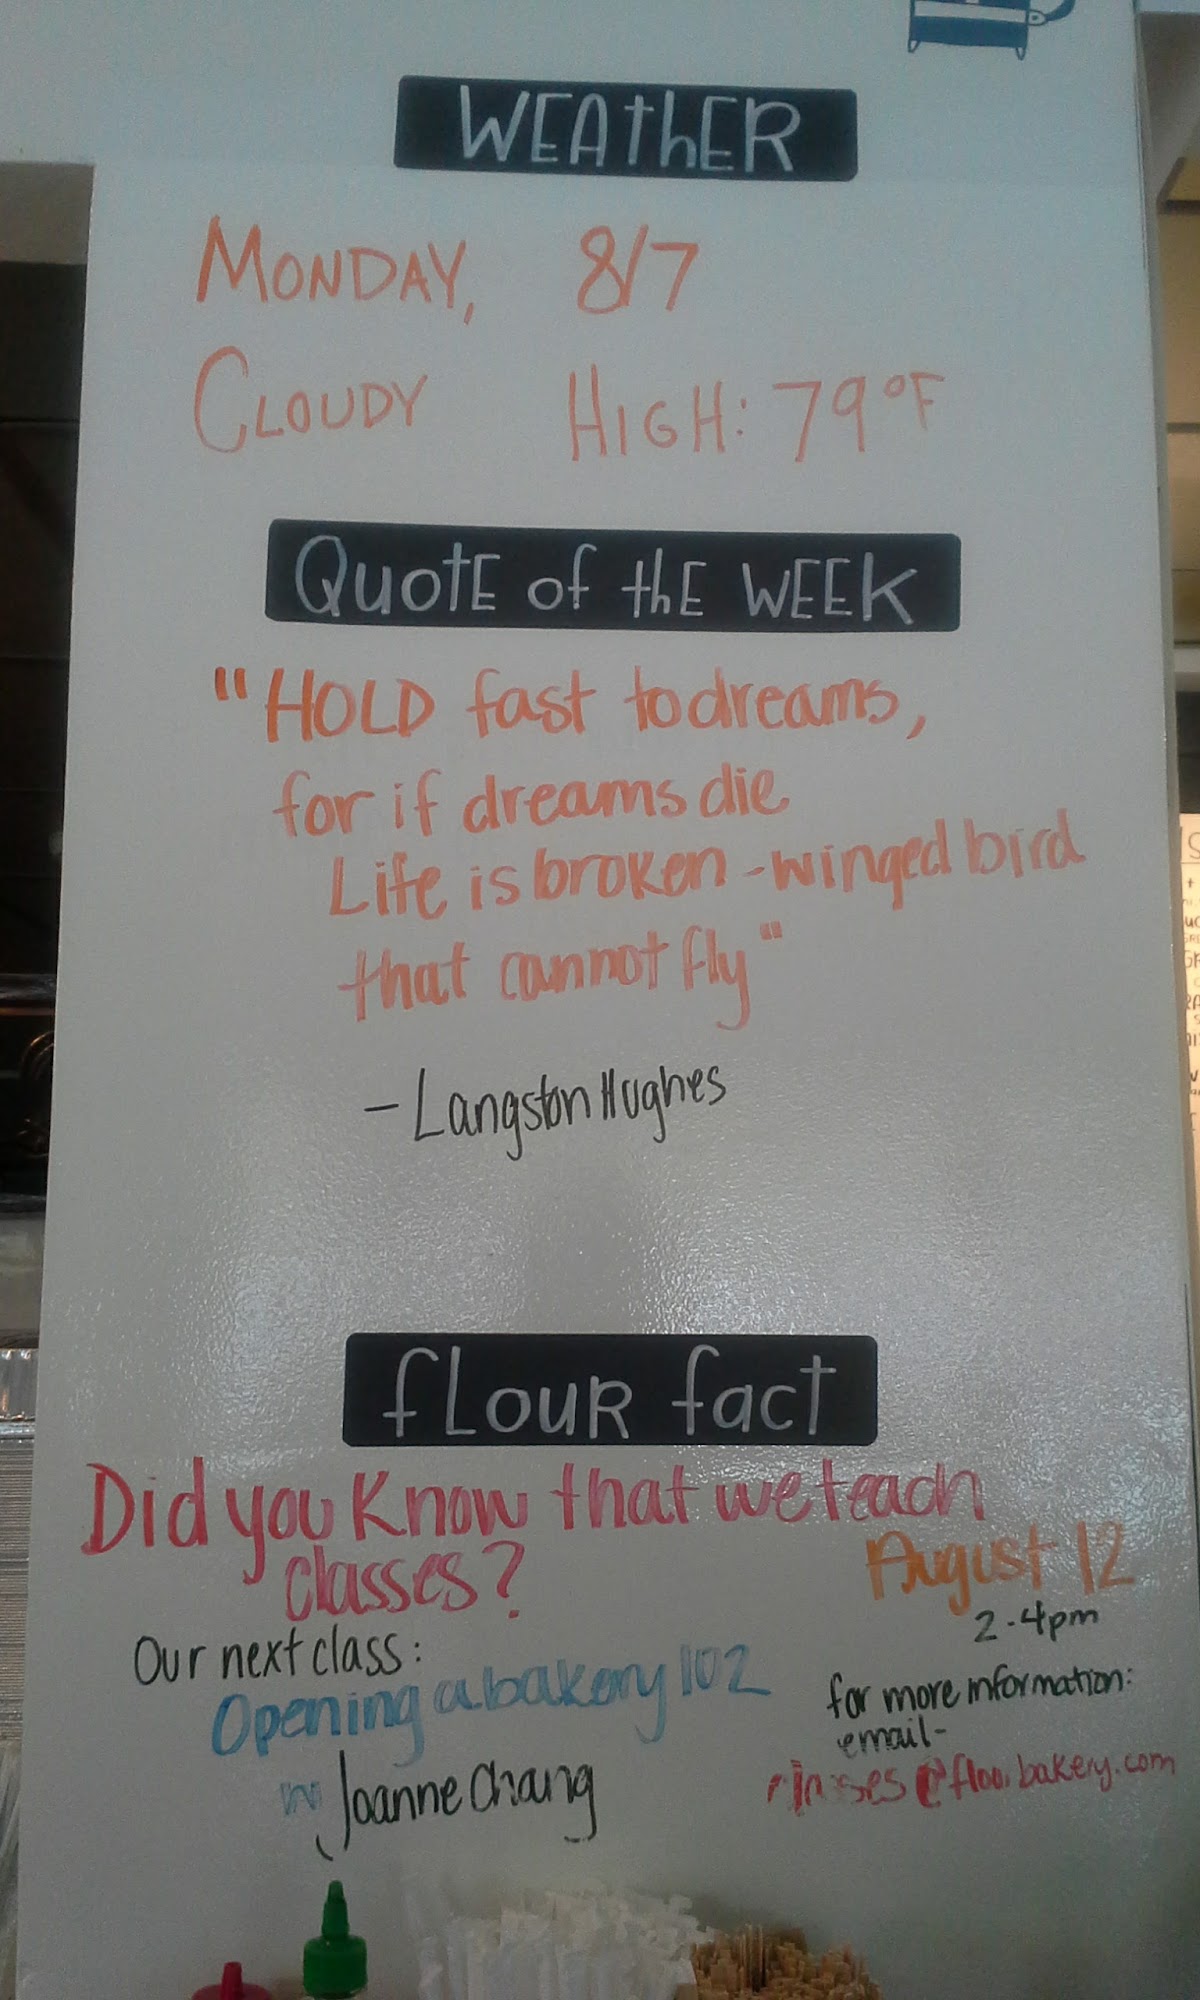 WEAthER
MONDAY, 8/7
CLOUDY HIGH: 79°F
QuotE of thE WEEK
"HOLD fast to dreams,
for if dreams die
Life is broken-winged bird
that cannot fly"
- Langston Hughes
fLouR fact
Did you Know that we teach
classes?
August 12
2-4pm
Our next class:
Opening a bakery 102
w/ Joanne Chang
for more information:
email-